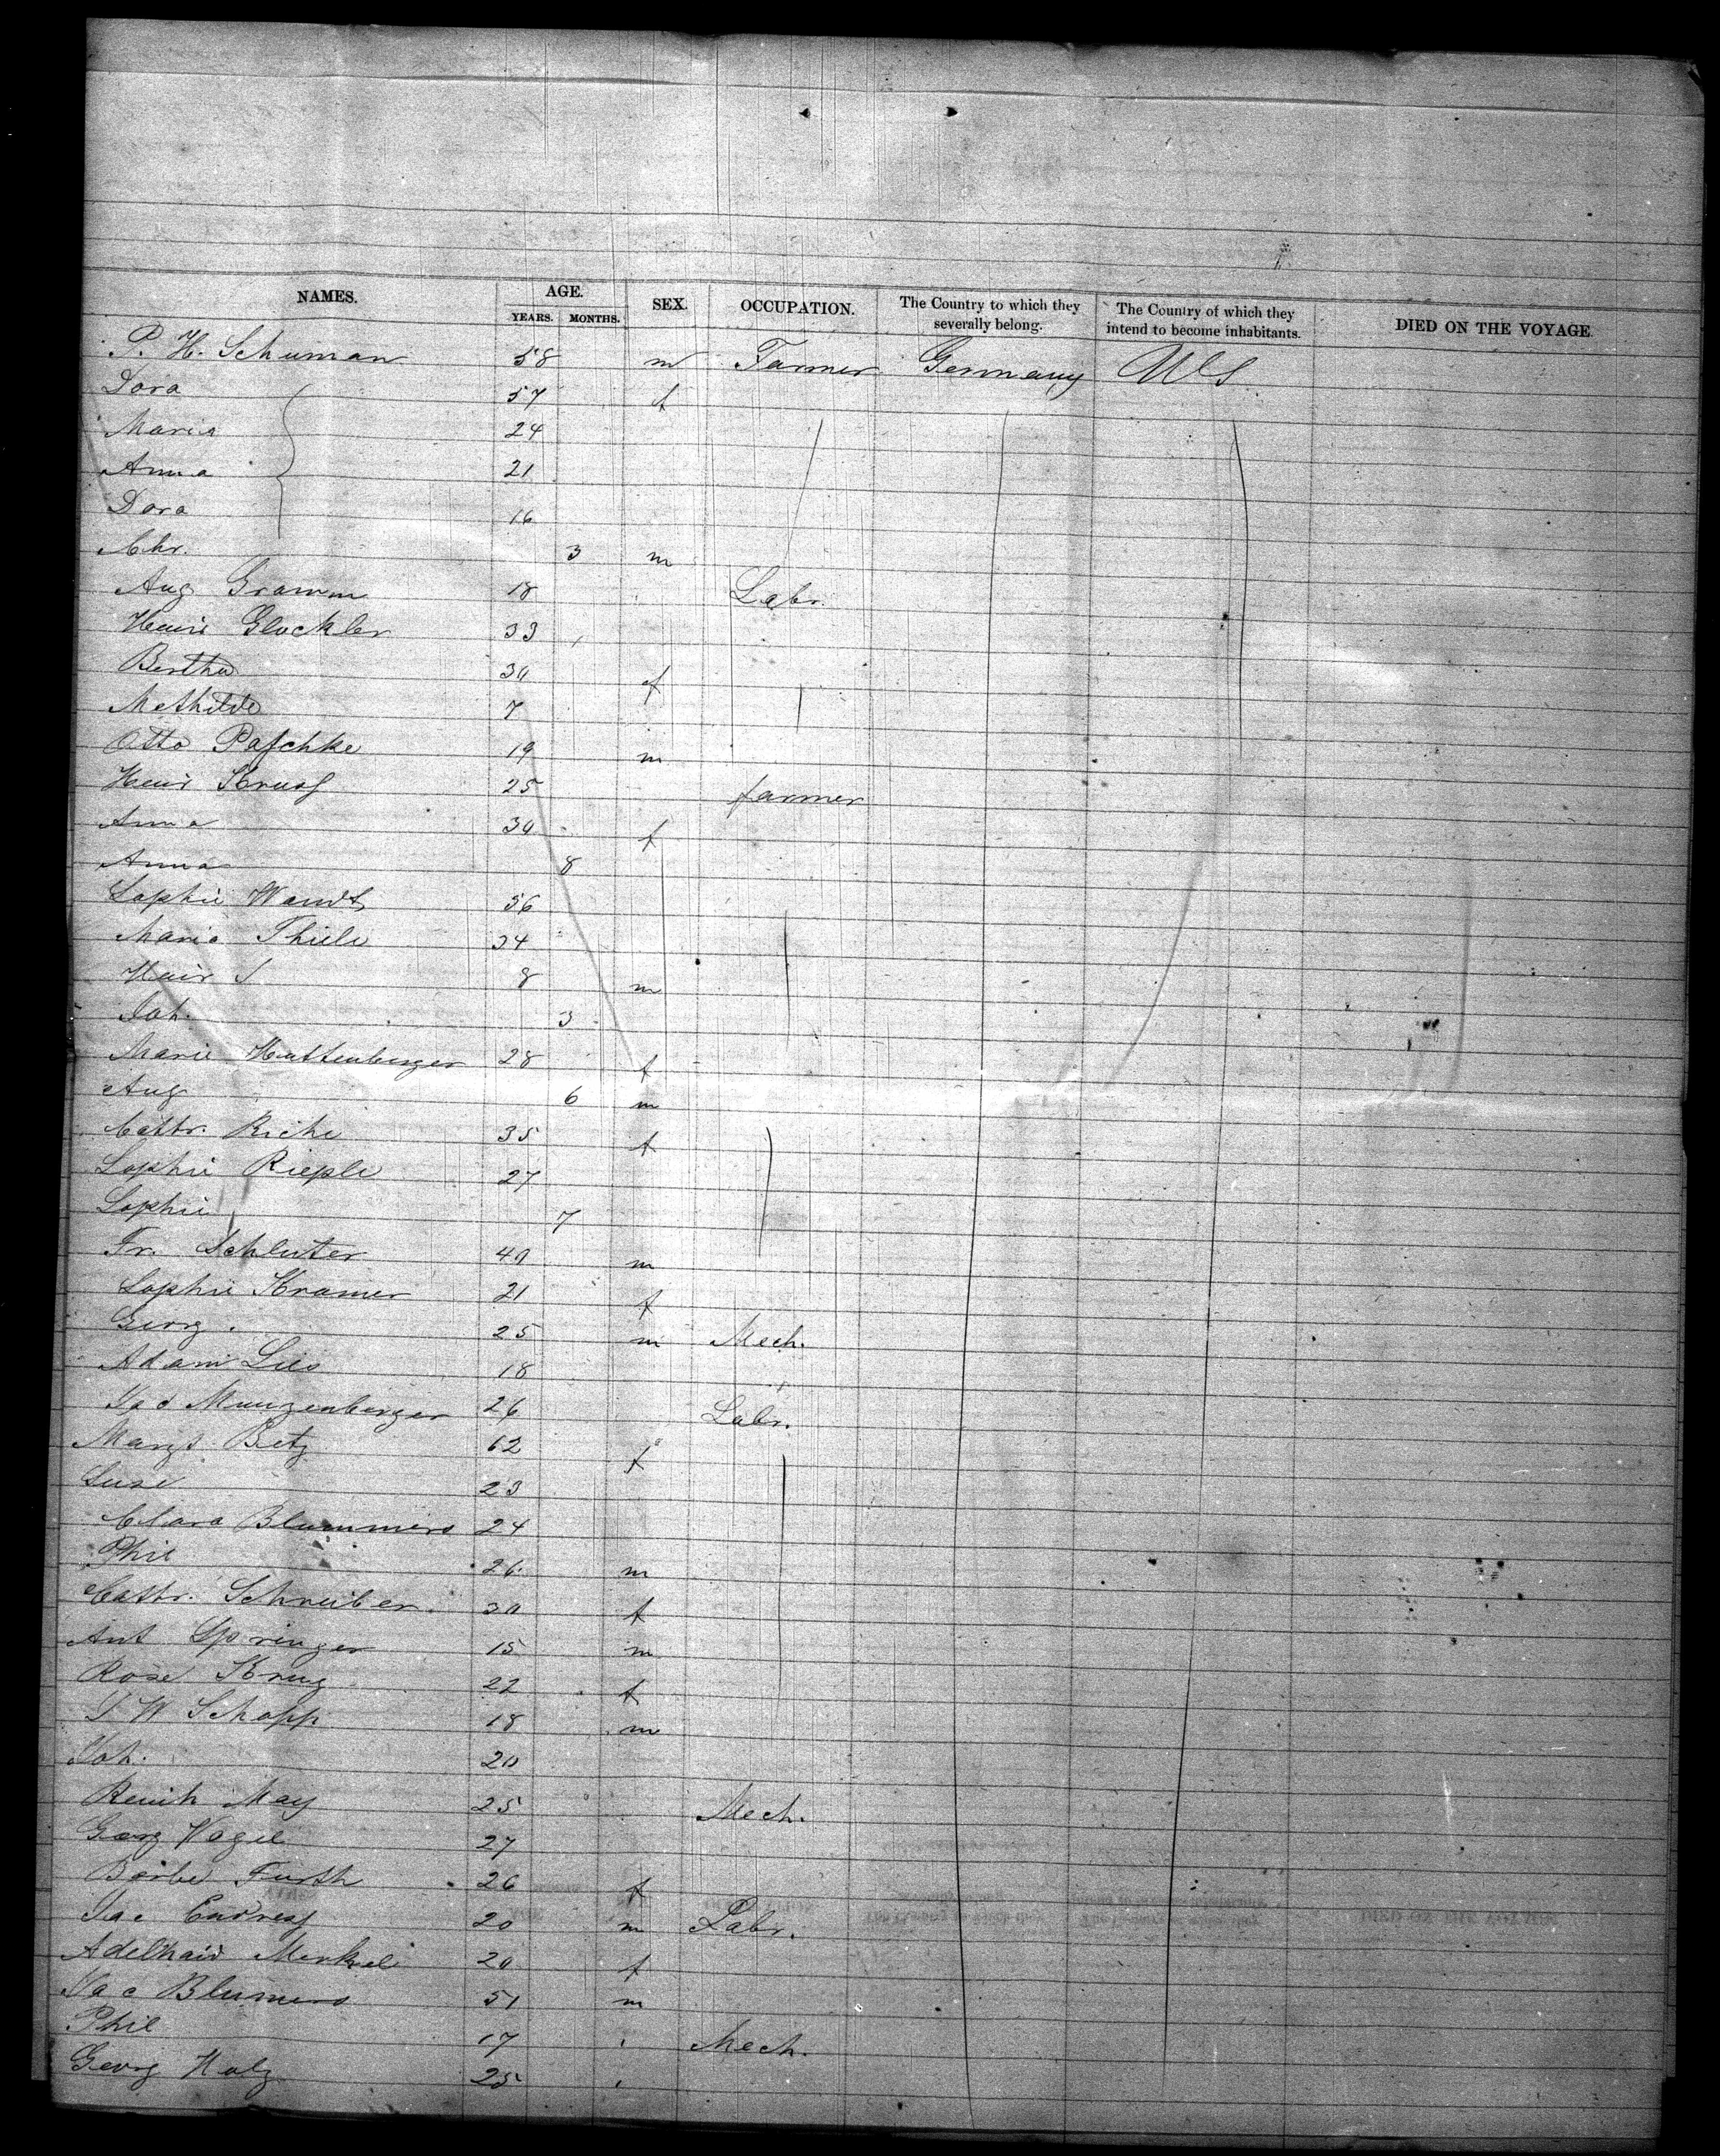 NAMES. AGE. SEX. OCCUPATION. The Country to which they severally belong. The Country of which they intend to become inhabitants. DIED ON THE VOYAGE.
YEARS. MONTHS.
P. H. Schuman 58 m Farmer Germany US
Dora 57 f
Maria 24
Anna 21
Dora 16
Chr. 3 m
Aug Gramm 18 Labr.
Heinr Glockler 33
Bertha 30 f
Mathilde 7
Otto Paschke 19 m
Heinr Krusf 25 farmer
Anna 30 f
Anna 8
Sophie Wandt 56
Maria Thiele 34
Heinr J 8 m
Joh. 3
Marie Huttenberger 28 f
Aug 6 m
Cathr. Riche 35 f
Sophie Rieple 27
Sophie 7
Fr. Schluter 40 m
Sophie Kramer 21 f
Georg. 25 m Mech.
Adam Lies 18
Jac Munzenberger 26 Labr.
Margt Betz 62 f
Suse 23
Clara Blummers 24
Phil 26 m
Cathr. Schreiber 30 f
Ant Springer 15 m
Rose Krug 22 f
J W Schopp 18 m
Joh. 20
May 25 Mech.
Georg Vogel 27
Barbe Furth 26 f
Jac Endress 20 m Labr.
Adelhaid Merkel 20 f
Jac Blumers 51 m
Phil 17 Mech.
Georg Holz 25